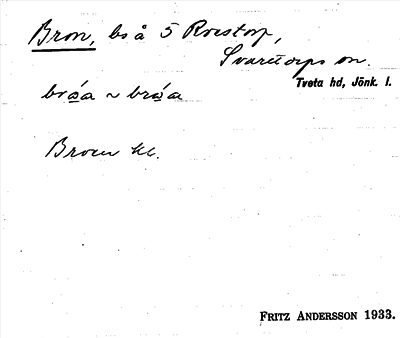 Bron, bs å 5 Rosstorp,
Svarttorps sn.
Tveta hd, Jönk. l.
broa ~ broa
Broen kk.
FRITZ ANDERSSON 1933.